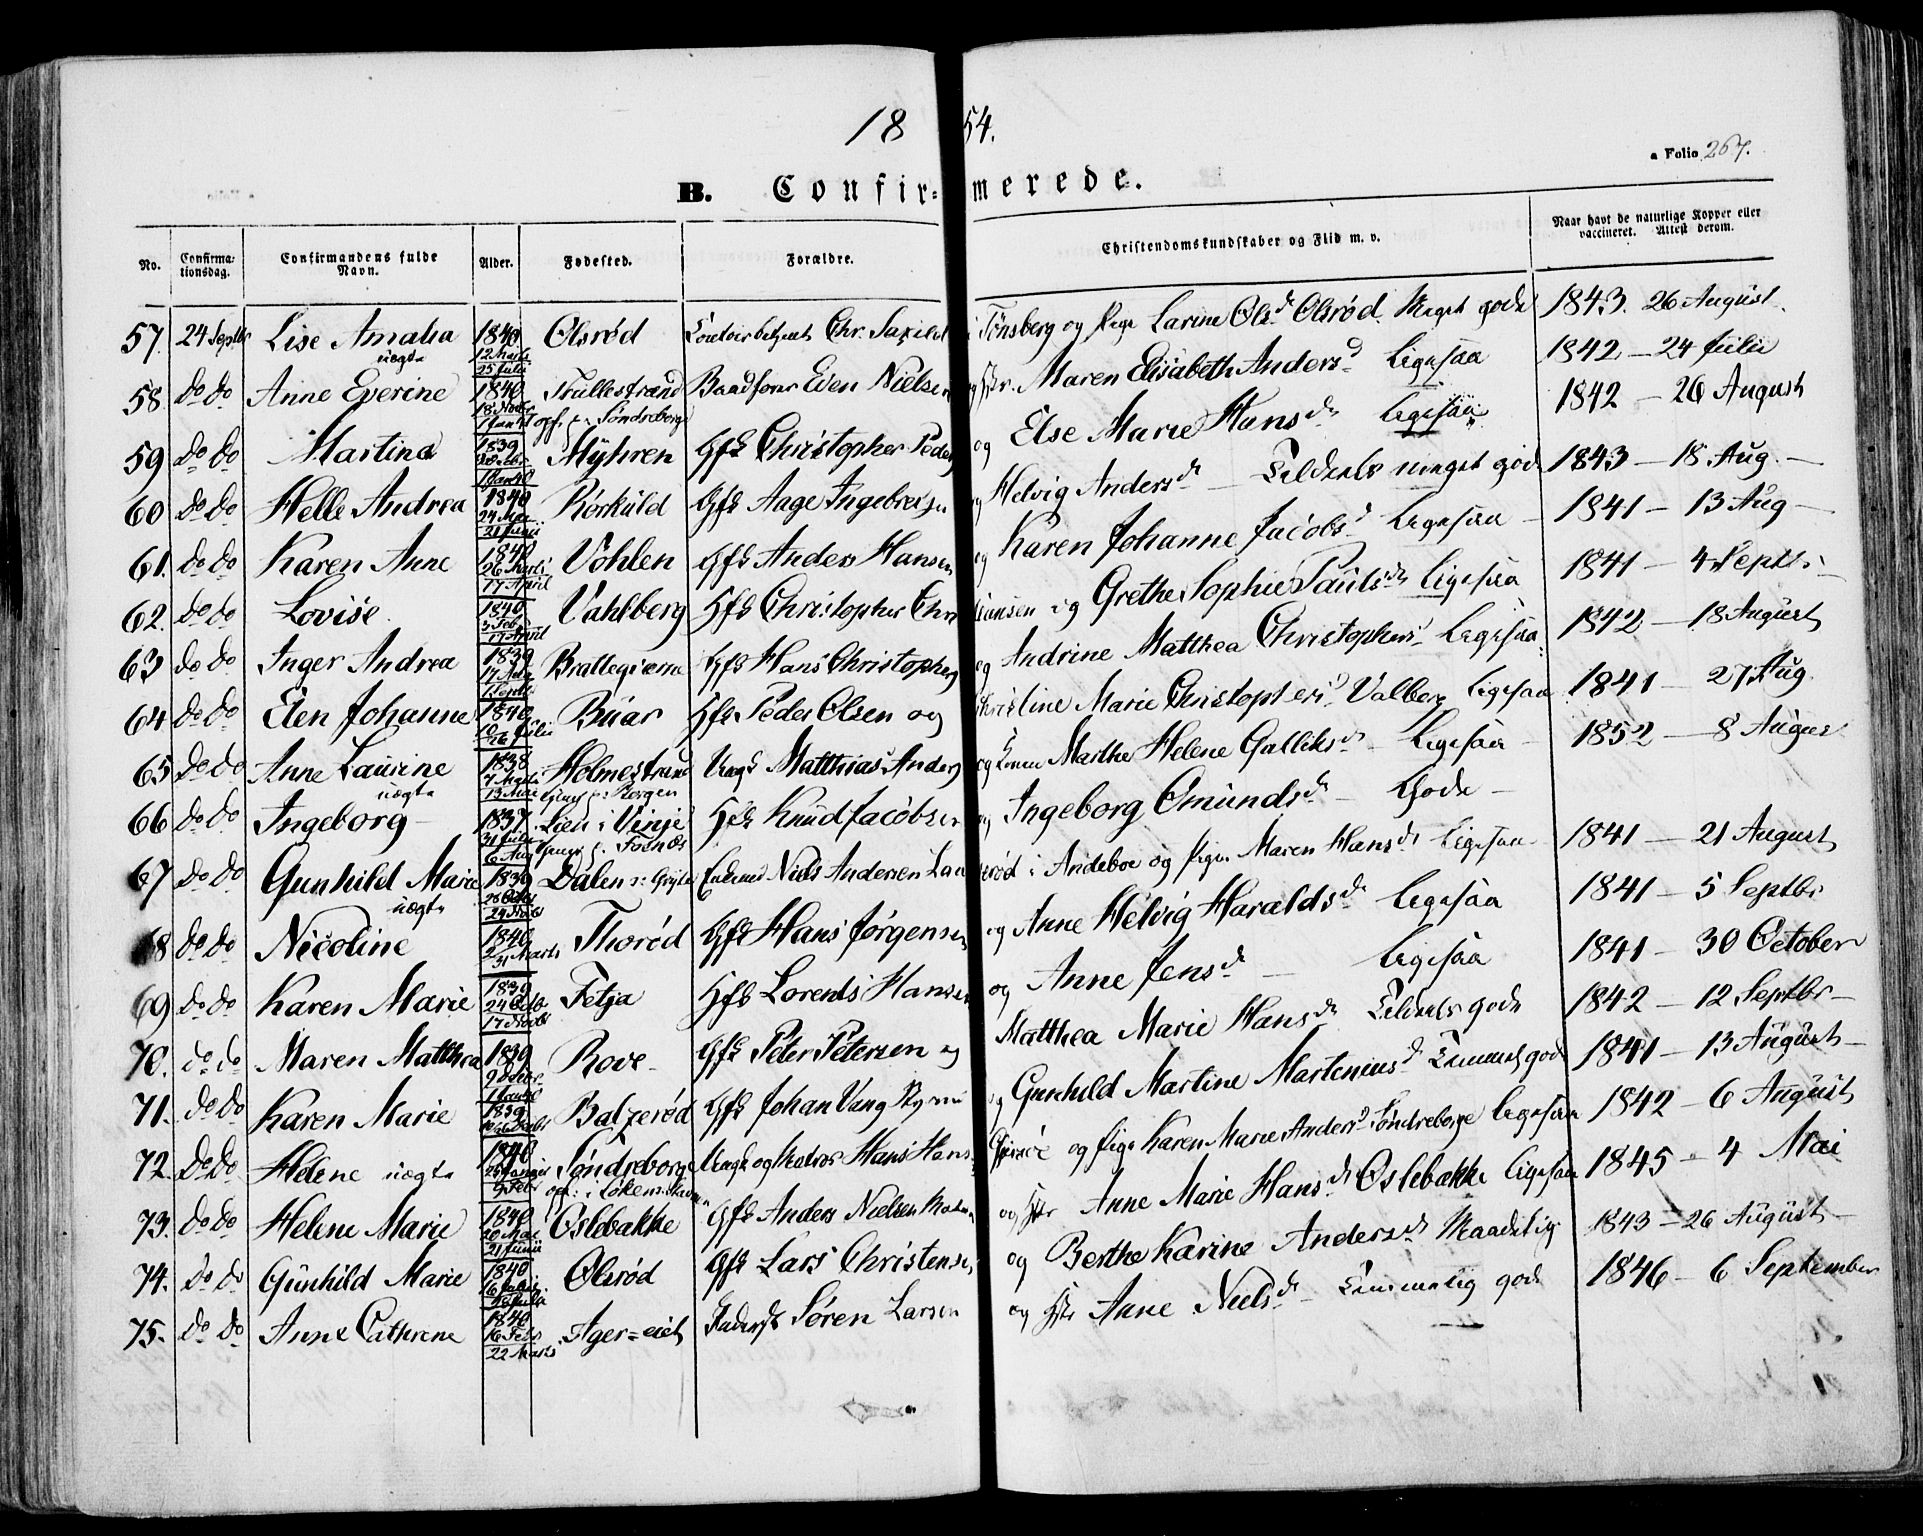 1854.
a Folio 267.
B. Confir=merede.
No. Confirma-tionsdag. Confirmandens fulde Navn. Alder. Fødested. Forældre. Christendomskundskaber og Flid m. v. Naar havt de naturlige Kopper eller vaccineret. Attest derom.
57. 24 Septbr Lise Amalia uægte 1840 12 Marts 25 Julii Olsrød Chr. Saxild i Tønsberg og Pige Larine Olsd Olsrød. Meget gode 1843. 26 August.
58. do do Anne Everine 1840 18 Novbr Trullestrand opf. p. Søndreberge Baadfører Even Nielsen og Hstr. Maren Elisabeth Andersd Ligesaa 1842 — 24 Julii
59 do do Martina 1839 Myhren Gfd Christopher Peders og Else Marie Hansd. Ligesaa 1842 — 26 August
60 do do Helle Andrea 1840 24 Mai 21 Junii Rørkuld Gfd Aage Ingebretsen og Helvig Andersd — Tildeels meget gode 1843 — 18 Aug. —
61. do do Karen Anne 1840 26 Marts 17 April Vohlen Gfd Anders Hansen og Karen Johanne Jacobsd Ligesaa — 1841 — 13 Aug —
62. do do Lovise 1840 3 Feb 17 April Vahlberg Hfd Christopher Christiansen og Grethe Sophie Paulsd. Ligesaa 1841 — 4 Septbr —
63 do do Inger Andrea 1839 Brattegierne Gfd Hans Christophers og Andrine Matthea Christophersd Ligesaa 1842 — 18 August
64 do do Elen Johanne 1840 Buar Hfd Peder Olsen og Christine Marie Christophersd Valberg Ligesaa 1841 — 27 Aug.
65 do do Anne Laurine uægte 1838 7 Marts 13 Mai Holmestrand Ungk Matthias Anders og Marthe Helene Galliksd. Ligesaa — 1852 — 8 August
66 do do Ingeborg — 1837 31 Julii 6 Aug Lien i Vinje Hfd Knud Jacobsen og Ingeborg Omundsd. — Gode —
67 do do Gunhild Marie uægte 1839 28 Octbr 24 Novbr Dalen Enkemd Niels Andersen i Andeboe og Pigen Maren Hansd. Ligesaa 1841 — 21 August
68 do do Nicoline 1840 31 Marts Thorød Gfd Hans Jørgensen og Anne Helvig Haraldsd. Ligesaa 1841 — 5 Septbr
69 do do Karen Marie 1839 24 Octbr 17 Novbr Fetja Hfd Lorents Hansen og Anne Jensd — Ligesaa 1841 — 30 October
70. do do Maren Matthea 1839 Rove — Gfd Peter Petersen og Matthea Marie Hansd. Tildeels gode 1842 — 12 Septbr —
71. do do Karen Marie 1839 Balzerød Gfd Johan Vang og Gunhild Martine Marteniusd Temmel. gode 1841 — 13 August —
72. do do Helene uægte 1840 Søndreberge Ungk og Matros Hans Hans og Pige Karen Marie Andersd Søndreberge Ligesaa 1842 — 6 August
73. do do Helene Marie 1840 20 Mai 21 Junii Oslebakke Gfd Anders Nielsen og Hstr Anne Marie Hansd. Oslebakke Ligesaa 1845 — 4 Mai
74. do do Gunhild Marie 1840 Olsrød Gfd Lars Christensen og Berthe Karine Andersd. Maadelig 1843 — 26 August —
75. do do Anne Cathrine 1840 16 Feb 22 Marts Ager=eiet Søren Larsen og Hstr Anne Nielsd. — Temmelig gode 1846 — 6 September